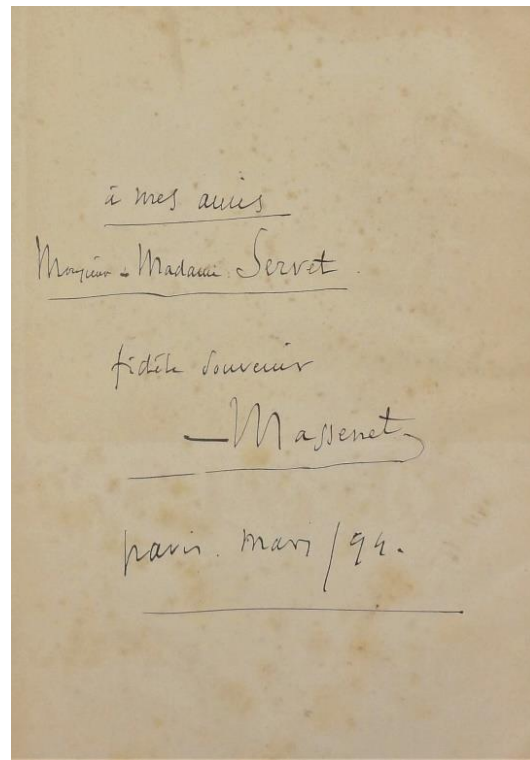 à mes amis
Monsieur & Madame Servet.
fidèle souvenir
— Massenet
paris. mars / 94.